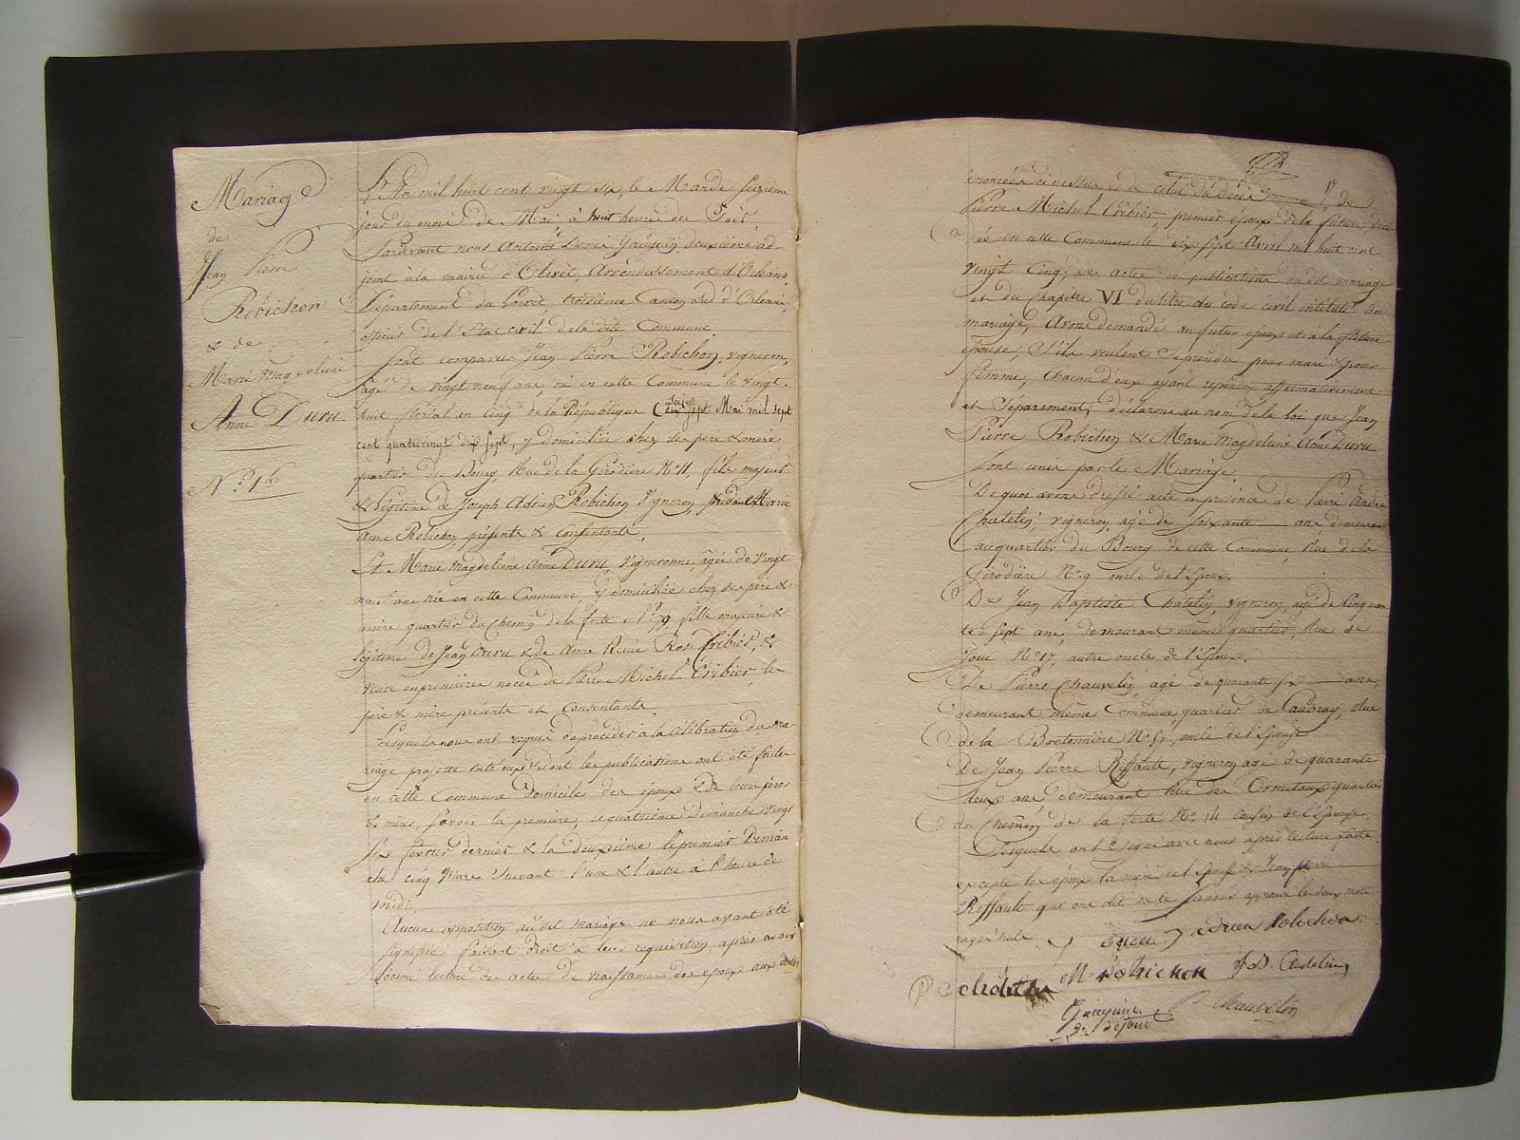 Mariage
de
Jean Pierre
Robichon
& de
Marie Magdeleine
Anne Duru
L'An mil huit cent vingt six, le Mardi seizieme
jour du mois de Mai à huit heures du Soir
Pardevant nous Antoine deuxième ad-
joint à la mairie d'Olivet, Arrondissement d'Orléans,
Département du Loiret, troisième Canton d'Orléans,
officier de l'Etat civil de la dite Commune.
Sont comparus Jean Pierre Robichon, vigneron,
âgé de vingt neuf ans, né en cette Commune le vingt
huit floréal an cinq de la République (dix sept Mai mil sept
cent quatrevingt dix sept, y domicilié chez ses père & mere
quartier du Bourg, Rue de la Girodière N° 11, fils majeur
& légitime de Joseph Adrien Robichon Vigneron, & de Marie
Anne Robichon, présents & consentants.
Et Marie Magdeleine Anne Duru, Vigneronne, âgée de vingt
ans née en cette Commune, y domiciliée chez ses père &
mère quartier du Chemin de la ferté N° 79, fille majeure &
légitime de Jean Duru & de Anne Reine Rose Cribier, &
veuve en premières noces de Pierre Michel Cribier, les
père & mère présents et Consentants
Lesquels nous ont requis de procéder à la célébration du ma-
riage projetté entr'eux & dont les publications ont été faites
en cette Commune domicile des époux & de leurs pères
& mères, savoir la première, le quatrième Dimanche vingt
six fevrier dernier & la deuxième le premier Diman
che cinq Mars suivant l'une & l'autre à l'heure de
midi,
Aucune opposition au dit mariage ne nous ayant été
signifiée faisant droit à leur requisition, après avoir
donné lecture des actes de naissance des époux aux dates
énoncées ci dessus et de celui du décès de
Pierre Michel Cribier, premier époux de la future, décé
dé en cette Commune le dix sept Avril mil huit cent
vingt cinq, des actes de publications du dit mariage
et du chapitre VI du titre du code civil intitulé du
mariage, Avons demandé au futur époux et à la future
épouse, s'ils veulent se prendre pour mari & pour
femme, chacun d'eux ayant répondu affirmativement
et séparément, déclarons au nom de la loi que Jean
Pierre Robichon & Marie Magdeleine Anne Duru
sont unis par le Mariage.
De quoi avons dressé acte en présence de Pierre André
Chatelin, vigneron, âgé de soixante ans demeurant
au quartier du Bourg de cette Commune, Rue de la
Girodière N° 9 oncle de l'Epoux.
De Jean Baptiste Chatelin, vigneron, âgé de Cinquan
te sept ans, demeurant même quartier, Rue de
N° 17, autre oncle de l'Epoux.
De Pierre Chauvelin, âgé de quarante six ans,
demeurant même Commune quartier du Caudray, Rue
de la Bretonnière N° 51, oncle de l'Epouse
De Jean Pierre Riffault, vigneron âgé de quarante
deux ans demeurant Rue des Ormeteaux quartier
du Chemin de la ferté N° 14 cousin de l'Epouse.
Lesquels ont signé avec nous après lecture faite
excepté les époux la mère de l'Epoux & Jean Pierre
Riffault qui ont dit ne le savoir
duru adrien Robichon
M robichon J. B. Chatelin
P chauvelin
2e adjoint